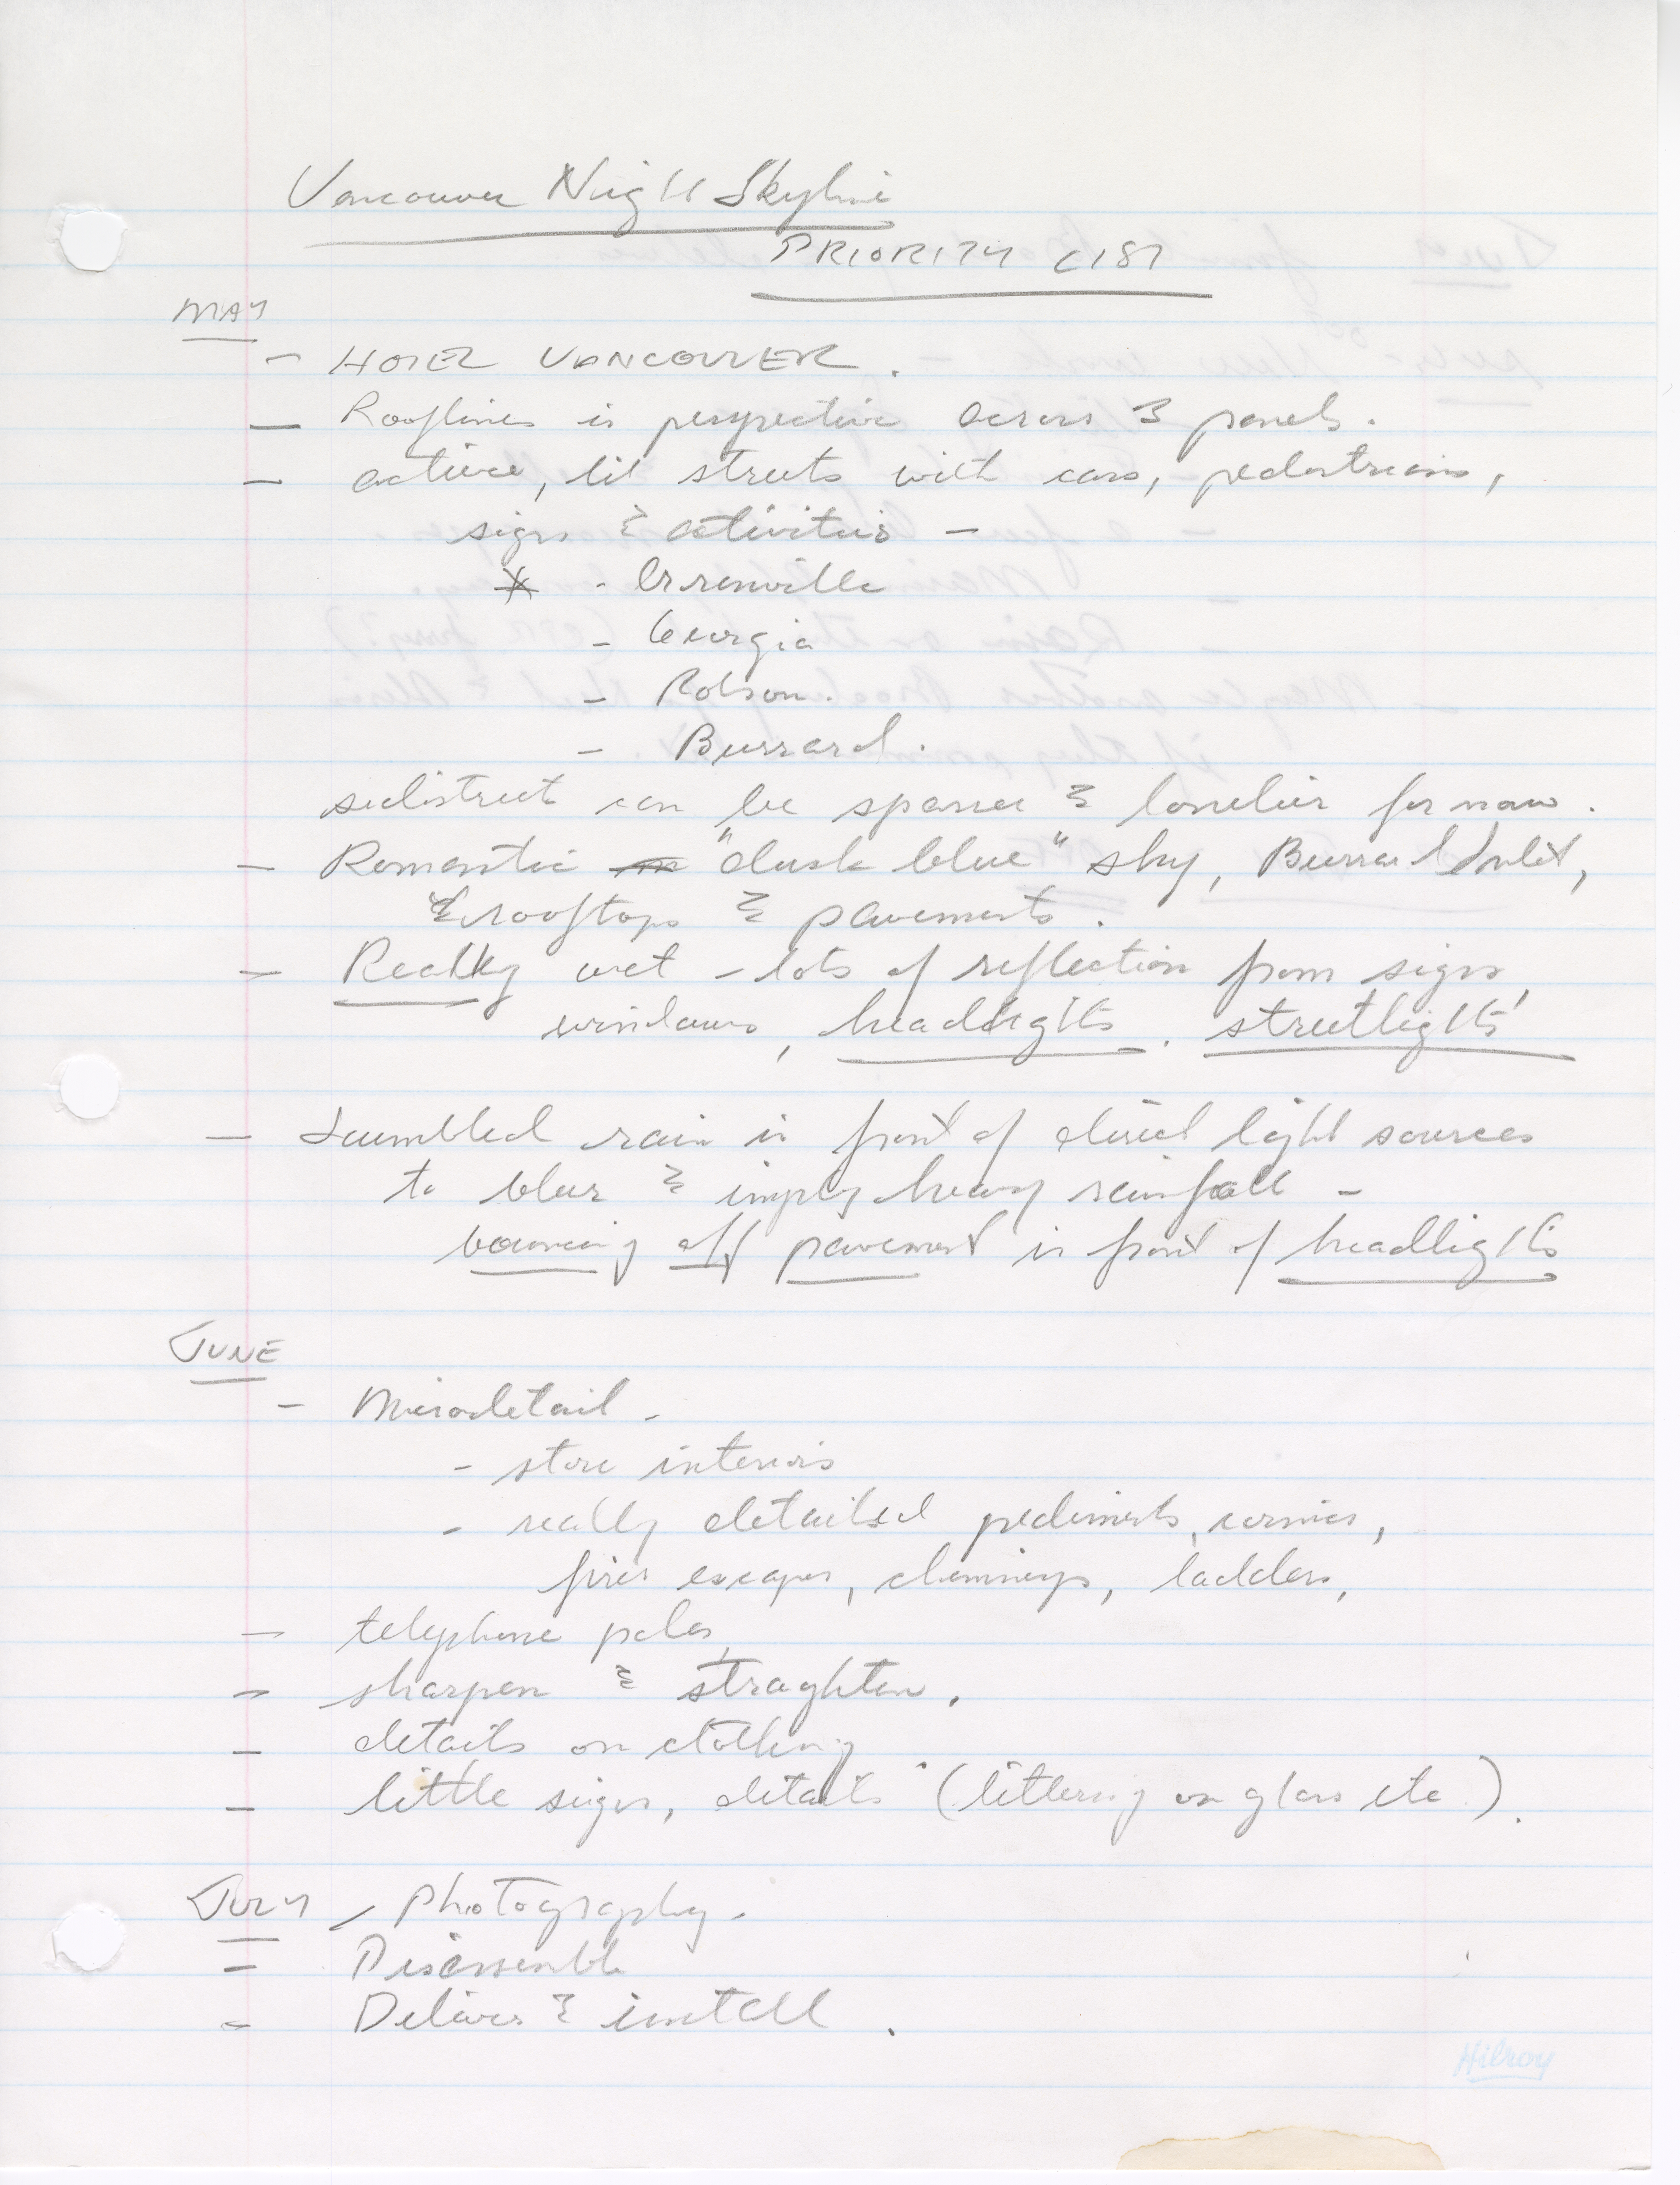 Vancouver Night Skyline
PRIORITY LIST
MAY
- HOTEL VANCOUVER.
- Rooflines in perspective across 3 panels.
- active, lit streets with cars, pedestrians,
signs & activities -
* - Granville
- Georgia
- Robson.
- Burrard.
sidestreet can be sparser & lonelier for now.
- Romantic "dusk blue" sky, Burrard Inlet,
& rooftops & pavements.
- Really wet - lots of reflection from signs,
windows, headlights, streetlights
- Scumbled rain in front of direct light sources
to blur & imply heavy rainfall -
bouncing off pavement in front of headlights
JUNE
- Microdetail -
- store interiors
- really detailed pediments, cornices,
fires escapes, chimneys, ladders,
- telephone poles,
- sharpen & straghten.
- details on clothing
- little signs, details (lettering on glass etc).
JULY - Photography.
- Disassemble
- Deliver & install.
Hilroy